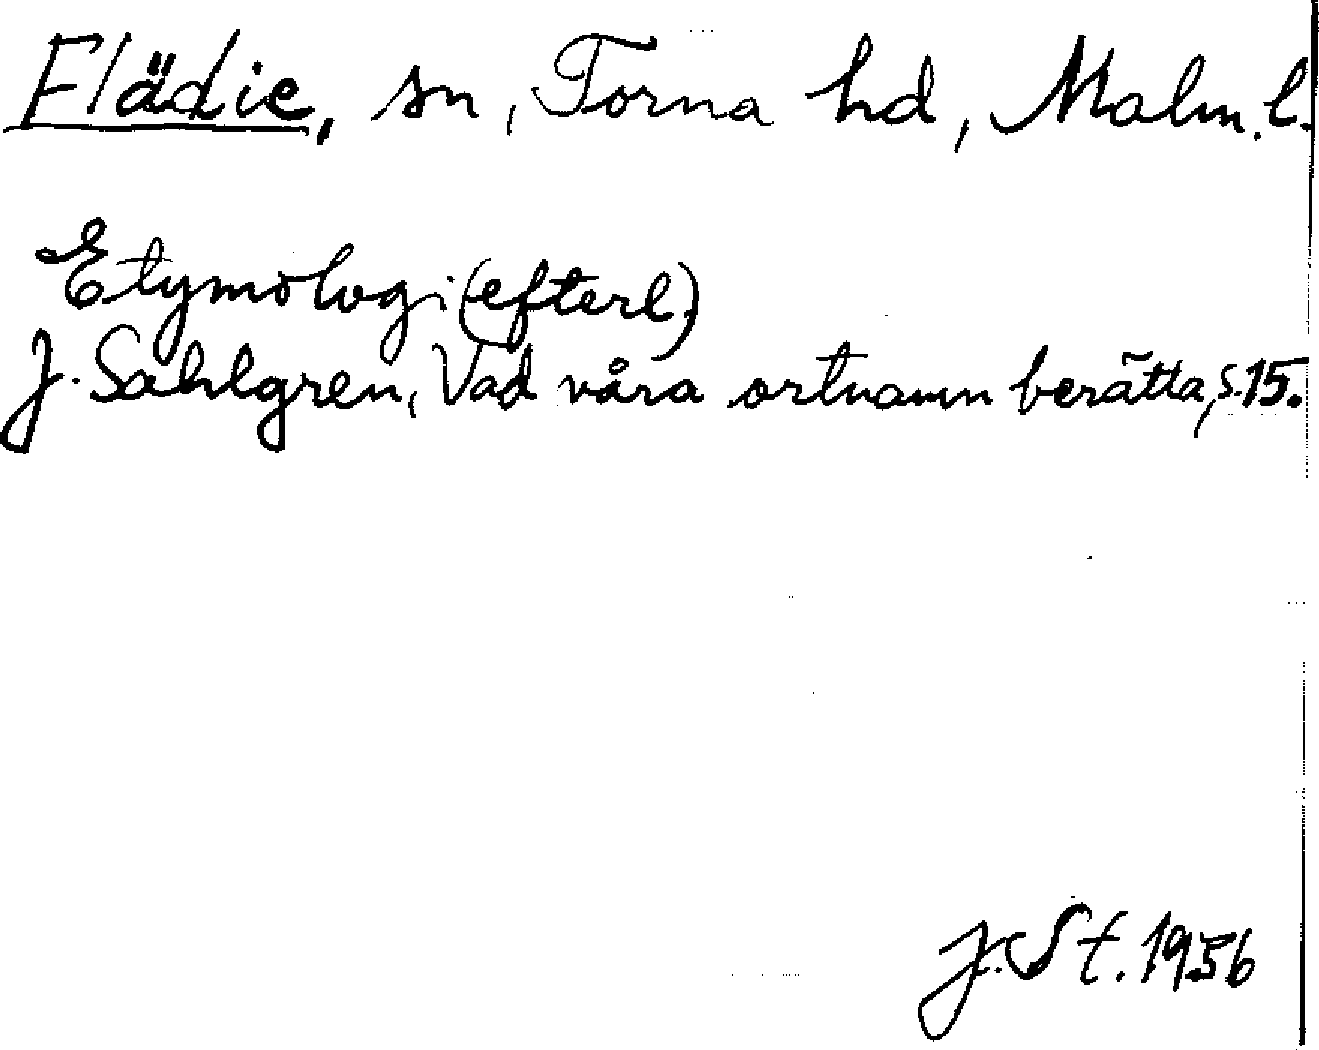 Flädie, sn, Torna hd, Malm. l.
Etymologi (efterl.)
J. Sahlgren, Vad våra ortnamn berätta, s. 15.
J. St. 1956